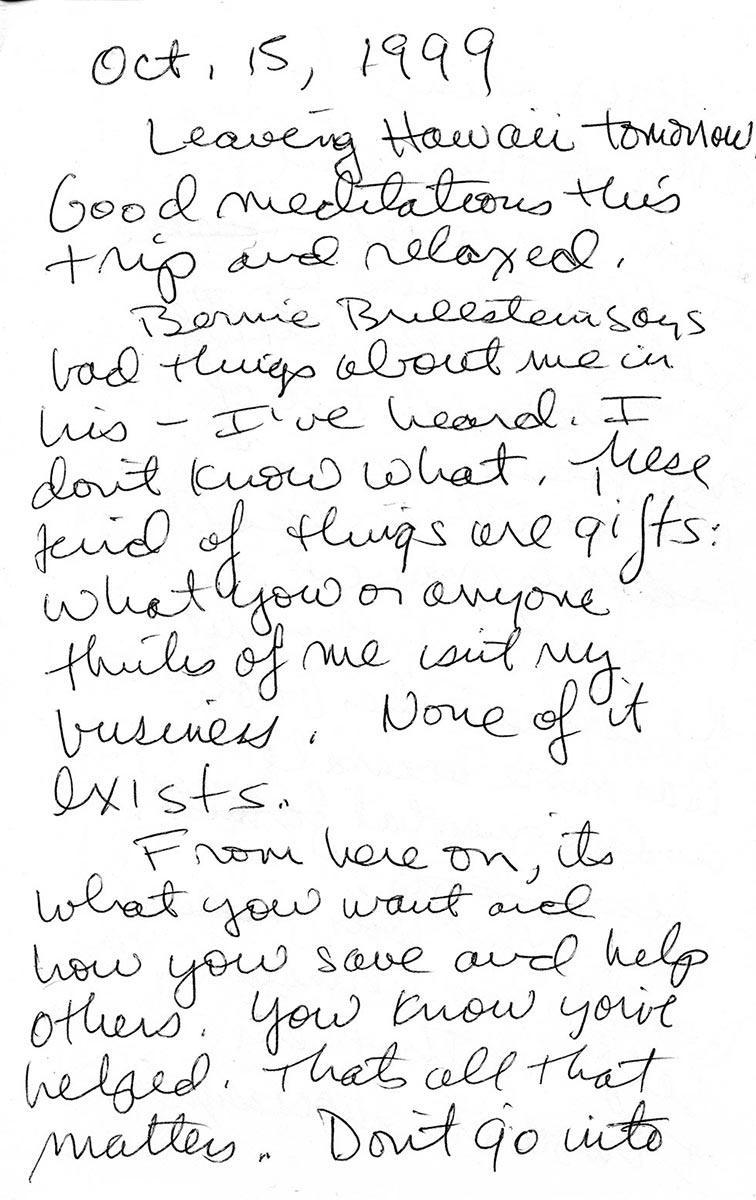 Oct. 15, 1999
Leaving Hawaii tomorrow
Good meditations this
trip and relaxed.
Bernie Brillstein says
bad things about me in
his – I've heard. I
don't know what. These
kind of things are gifts:
what you or anyone
thinks of me isn't my
business. None of it
exists.
From here on, its
what you want and
how you save and help
others. You know you've
helped. Thats all that
matters. Don't go into